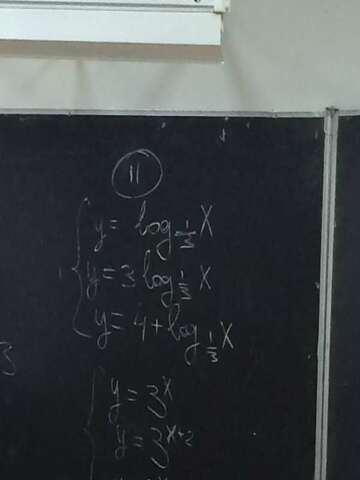 11
y = log_{1/3} X
y = 3 log_{1/3} X
y = 4 + log_{1/3} X
3
y = 3^x
y = 3^{x+2}